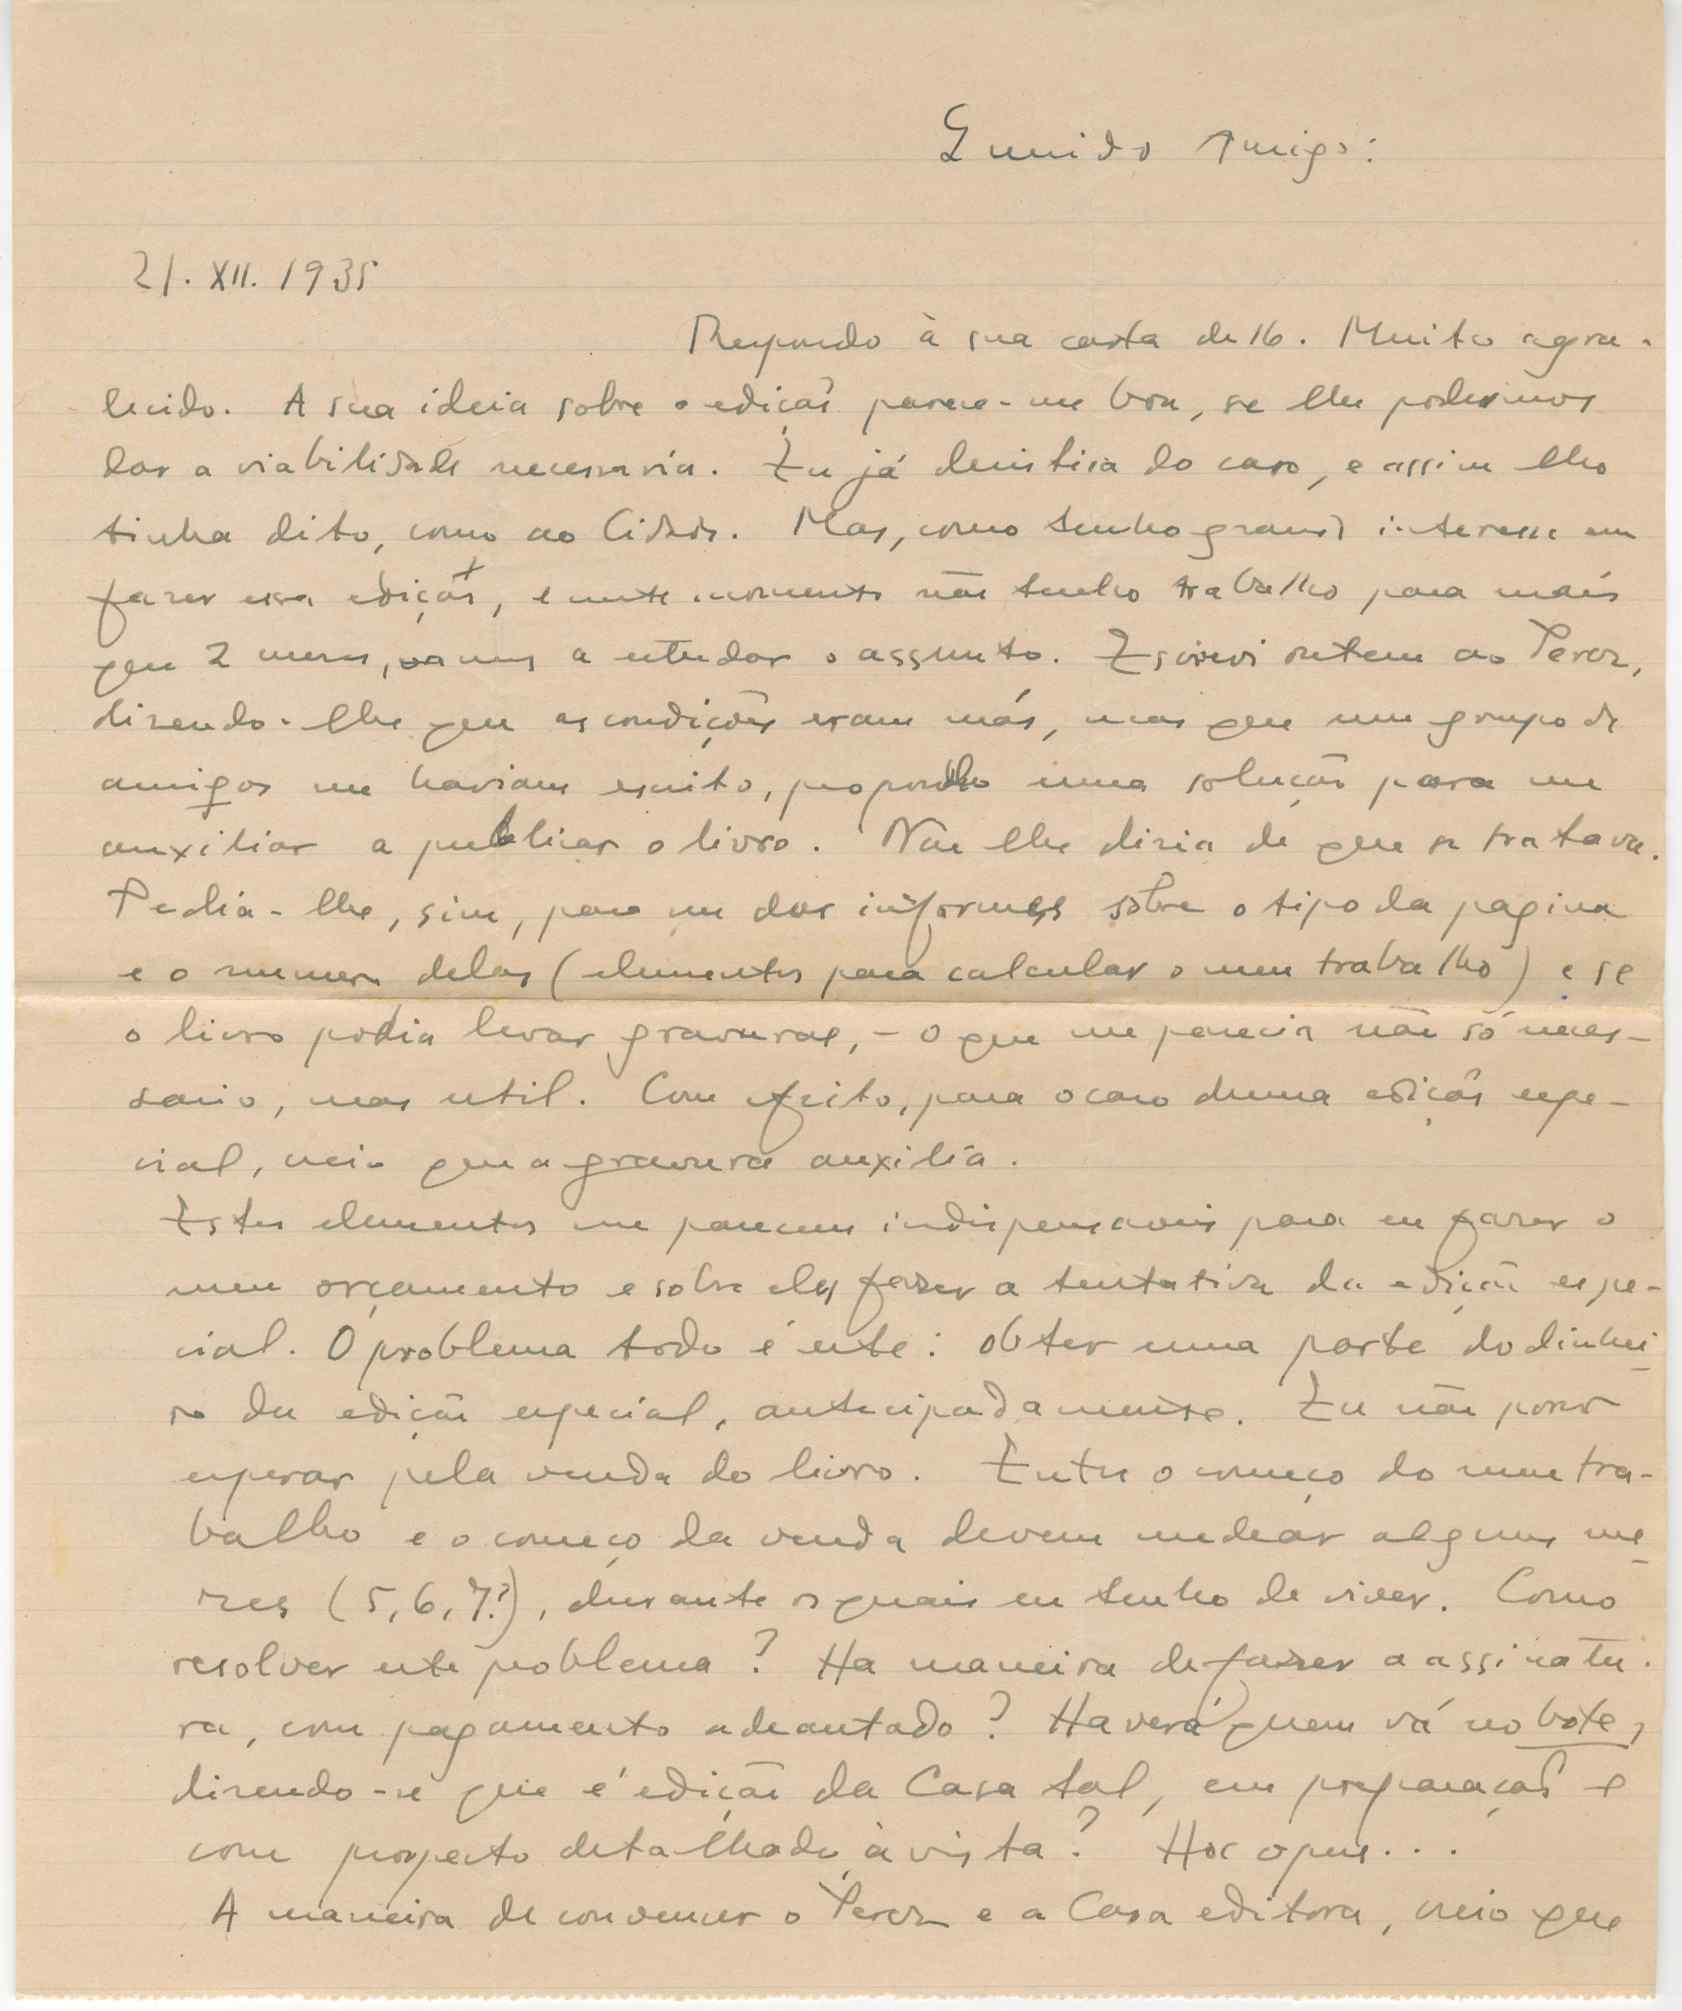 Querido Amigo:
21. XII. 1935
Respondo à sua carta de 16. Muito agra-
decido. A sua ideia sobre a edição parece-me boa, se lhe podermos
dar a viabilidade necessaria. Eu já desistira do caso, e assim lho
tinha dito, como ao Cidade. Mas, como tenho grande interesse em
fazer essa edição, e neste momento não tenho trabalho para mais
que 2 meses, vamos a estudar o assunto. Escrevi ontem ao Perez,
dizendo-lhe que as condições eram más, mas que um grupo de
amigos me haviam escrito, propondo uma solução para me
auxiliar a publicar o livro. Não lhe dizia de que se tratava.
Pedia-lhe, sim, para me dar informes sobre o tipo da pagina
e o numero delas (elementos para calcular o meu trabalho) e se
o livro podia levar gravuras, - o que me parecia não só neces-
sario, mas util. Com efeito, para o caso duma edição espe-
cial, creio que a gravura auxilia.
Estes elementos me parecem indispensaveis para eu fazer o
meu orçamento e sobre eles fazer a tentativa da edição espe-
cial. O problema todo é este: obter uma parte do dinhei-
ro da edição especial, antecipadamente. Eu não posso
esperar pela venda do livro. Entre o começo do meu tra-
balho e o começo da venda devem mediar alguns me-
zes (5, 6, 7?), durante os quais eu tenho de viver. Como
resolver este problema? Ha maneira de fazer a assinatu-
ra, com pagamento adeantado? Haverá quem vá no bote,
dizendo-se que é edição da Casa tal, em preparação e
com prospecto detalhado à vista? Hoc opus...
A maneira de convencer o Perez e a Casa editora, creio que